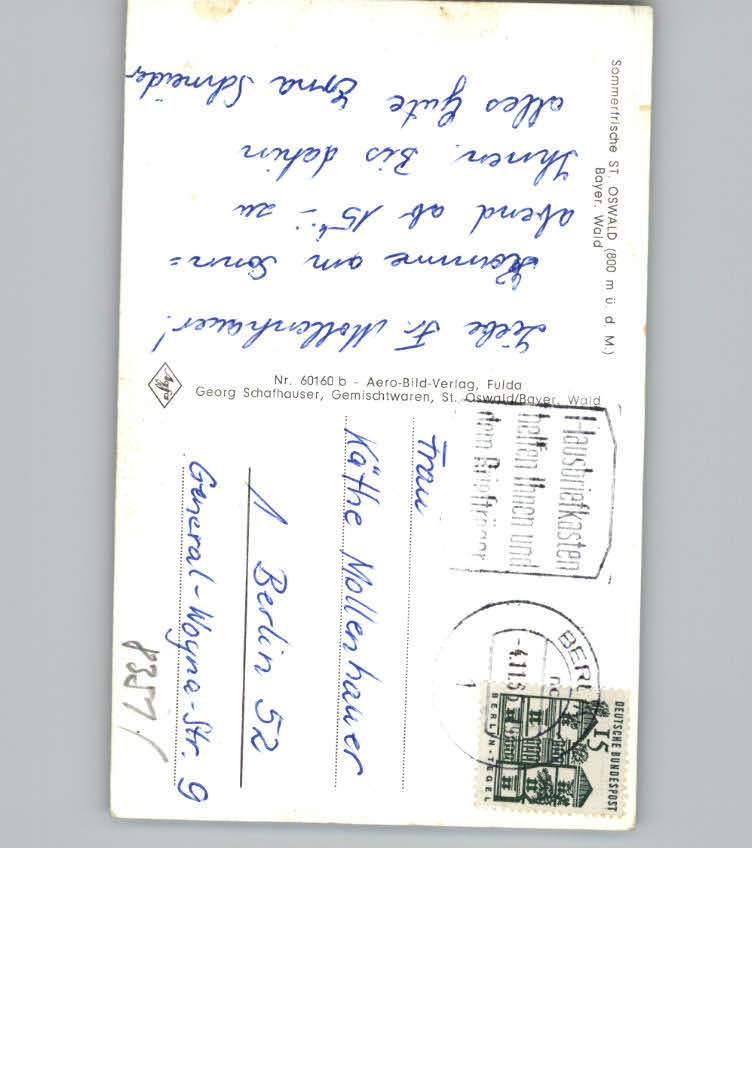 Sommerfrische ST. OSWALD (800 m ü. d. M.)
Bayer. Wald
Liebe Fr. Mollenhauer!
Komme am Sonn=
abend ab 15 h - zu
Ihnen. Bis dahin
alles Gute Erna Schneider
Agfa
Nr. 60160 b - Aero-Bild-Verlag, Fulda
Georg Schafhauser, Gemischtwaren, St. Oswald/Bayer. Wald
Hausbriefkasten
helfen Ihnen und
dem Briefträger
BERL
-4.11.6
1
DEUTSCHE BUNDESPOST
15
BERLIN-TEGEL
Frau
Käthe Mollenhauer
1 Berlin 52
General-Woyna-Str. 9